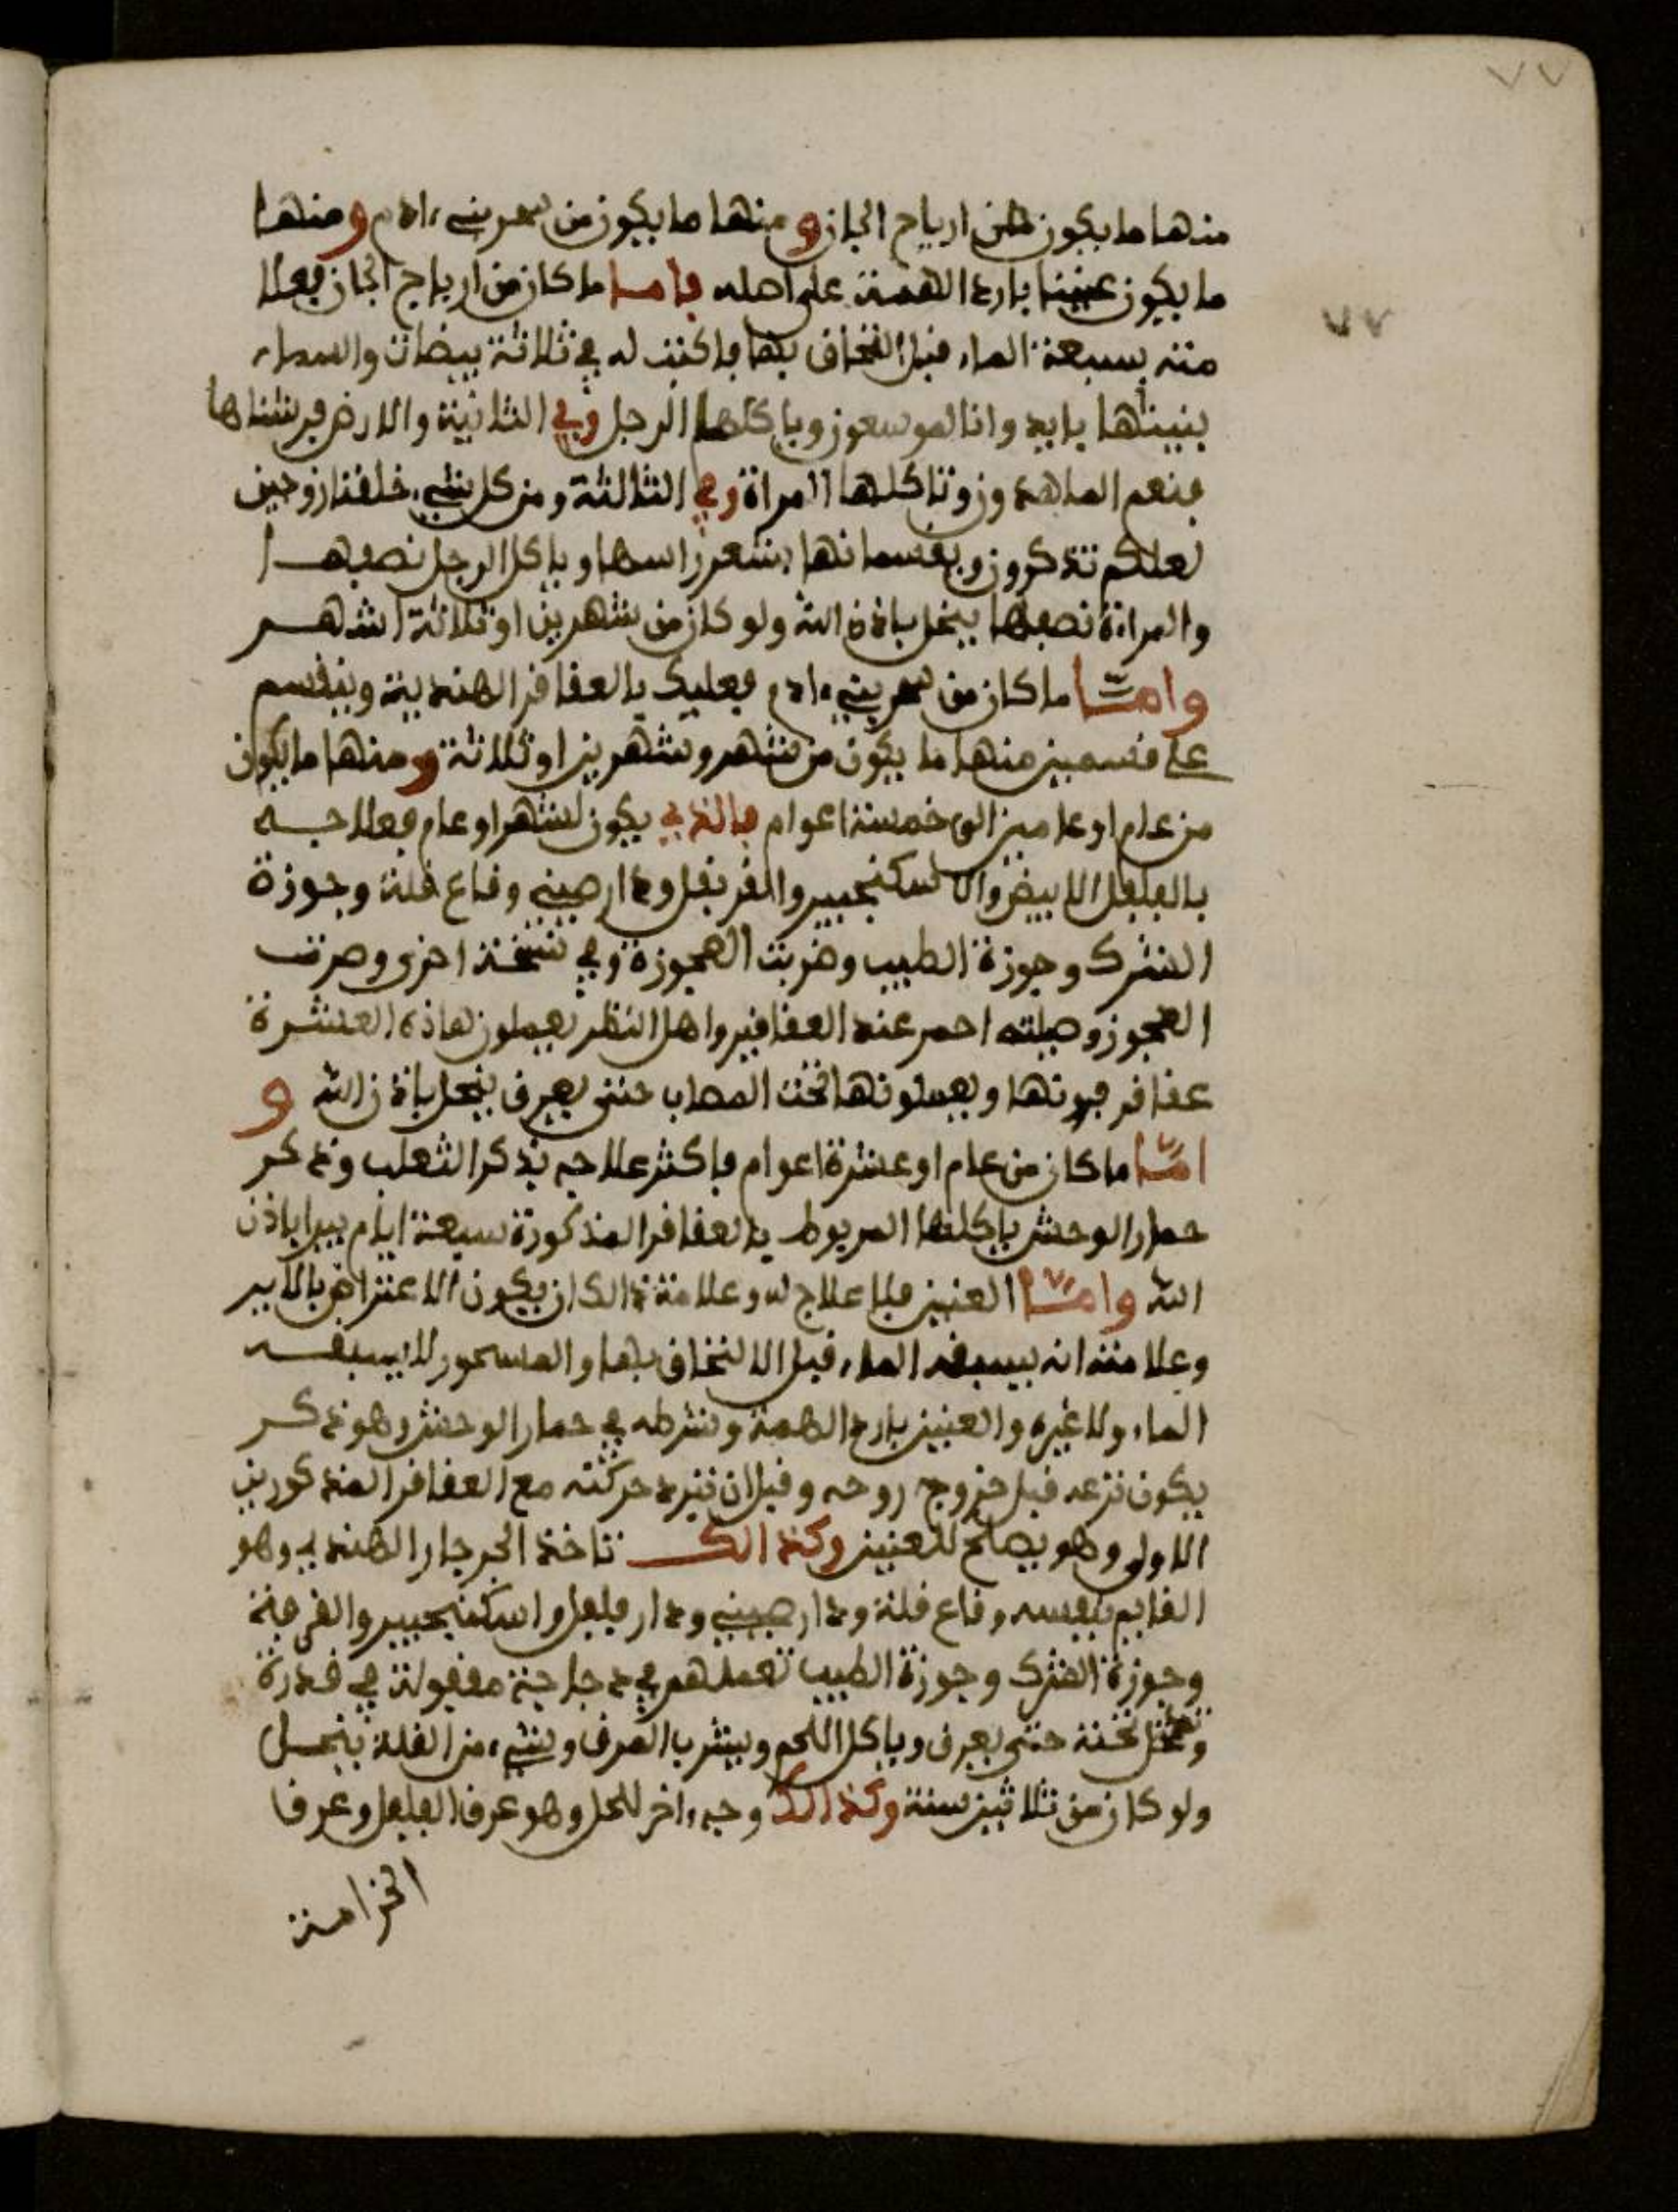 ٧٧
منها ما يكون من ارياح الجان ومنها ما يكون من سحر بني ءادم ومنها
ما يكون عنينا بارد الهمة على اهله فاما ما كان من ارياح الجان فعلا
منه يسبقه الماء قبل التخاق بها فاكتب له في ثلاثة بيضات والسماء
٧٧
بنيناها بايد وانا لموسعون وياكلها الرجل وفي الثانية والارض فرشناها
فنعم الماهدون وتاكلها المراة وفي الثالثة ومن كل شيء خلقنا زوجين
لعلكم تذكرون ويقسمانها بشعر راسها وياكل الرجل نصفها
والمراة نصفها ينحل باذن الله ولو كان من شهرين او ثلاثة اشهر
واما ما كان من سحر بني ءادم فعليك بالعقاقر الهندية وينقسم
على قسمين منها ما يكون من شهر وشهرين او ثلاثة ومنها ما يكون
من عام او عامين الى خمسة اعوام فالذي يكون لشهر او عام فعلاجه
بالفلفل الابيض والاسكنجبير والقرنفل ودارصيني وقاع قلة وجوزة
الشرك وجوزة الطيب وضربت العجوزة وفي نسخة اخرى وضرت
العجوز وصيلته احمر عند العقاقير واهل النظر يعملون هاذه العشرة
عقاقر فونها ويعملونها تحت المصاب حتى يعرق ينحل باذن الله و
اما ما كان من عام او عشرة اعوام فاكثر علاجه بذكر الثعلب وذكر
حمار الوحش ياكلها المربوط بالعقاقر المذكورة سبعة ايام يبرا باذن
الله واما العنين فلا علاج له وعلامة ذالك ان يكون الاعتراض بالاير
وعلامته انه يسبقه الماء قبل الالتخاق بها والمسحور لا يسبقه
الماء ولا غيره والعنين بارد الهمة وشرطه في حمار الوحش وهو ذكر
يكون نزعه قبل خروج روحه وقبل ان تبرد حركته مع العقاقر المذكورين
الاولى وهو يصلح للعنين وكذالك تاخذ الجرجار الهندي وهو
القايم بنفسه وقاع قلة ودارصيني ودار فلفل واسكنجبير والقرفة
وجوزة الشرك وجوزة الطيب تعملهم في دجاجة مقفولة في قدرة
وتحمل تحته حتى يعرق وياكل اللحم ويشرب المرق وشيء من الغلة ينحل
ولو كان من ثلاثين سنة وكذالك وجه ءاخر للحل وهو عرق الفلفل وعرق
الخزامة